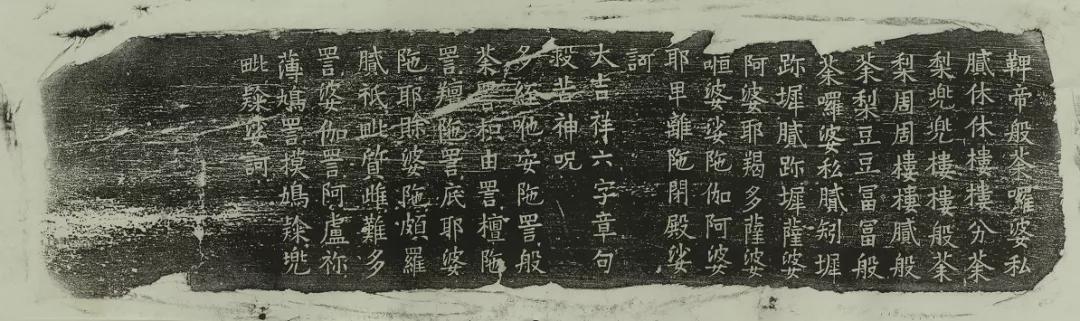 鞞帝般荼囉婆私
膩休休樓樓分荼
梨兜兜樓樓般荼
梨周周樓樓膩般
荼梨豆豆冨冨般
荼囉婆私膩矧墀
跡墀膩跡墀薩婆
阿婆耶羯多薩婆
咺婆娑陁伽阿婆
耶卑離陁閉殿娑
訶
大吉祥六字章句
救苦神呪
多絰咃安陁詈般
荼詈枳由詈檀陁
詈羶陁詈底耶婆
陁耶賖婆陁頗羅
膩祇毗質雌難多
詈婆伽詈阿盧祢
薄鳩詈摸鳩隸兜
毗隸娑訶